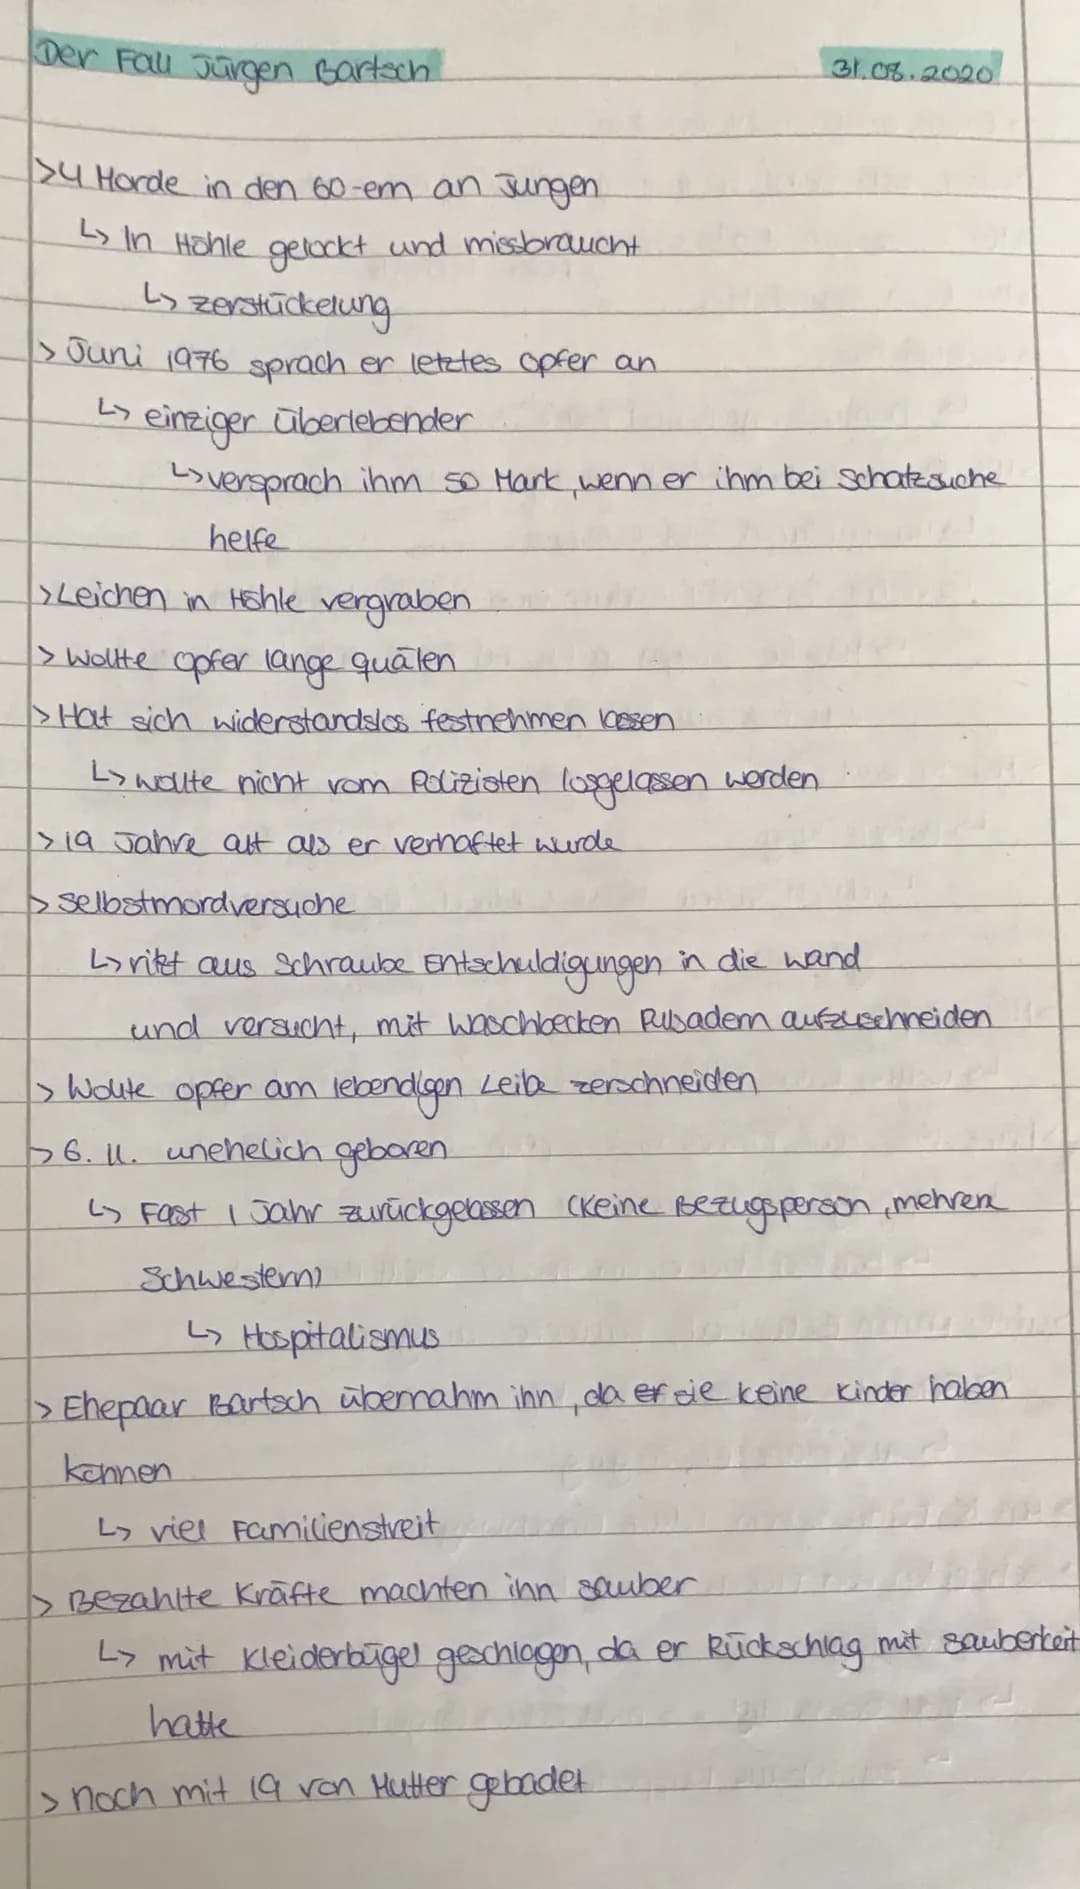 Der Fall Jürgen Bartsch
31.08.2020
>4 Morde in den 60-ern an Jungen
↳ In Höhle gelockt und missbraucht
↳ zerstückelung
> Juni 1976 sprach er letztes Opfer an
↳ einziger überlebender
↳ versprach ihm 50 Mark, wenn er ihm bei Schatzsuche
helfe
> Leichen in Höhle vergraben
> Wollte Opfer lange quälen
> Hat sich widerstandslos festnehmen lassen
↳ wollte nicht vom Polizisten losgelassen werden
> 19 Jahre alt als er verhaftet wurde
> Selbstmordversuche
↳ ritzt aus Schraube Entschuldigungen in die Wand
und versucht, mit Waschbecken Pulsadern aufzuschneiden
> Wollte Opfer am lebendigen Leibe zerschneiden
> 6. 11. unehelich geboren
↳ Fast 1 Jahr zurückgelassen (Keine Bezugsperson, mehrere
Schwestern)
↳ Hospitalismus
> Ehepaar Bartsch übernahm ihn, da er sie keine Kinder haben
können
↳ viel Familienstreit
> Bezahlte Kräfte machten ihn sauber
↳ mit Kleiderbügel geschlagen, da er Rückschlag mit Sauberkeit
hatte
> noch mit 19 von Mutter gebadet